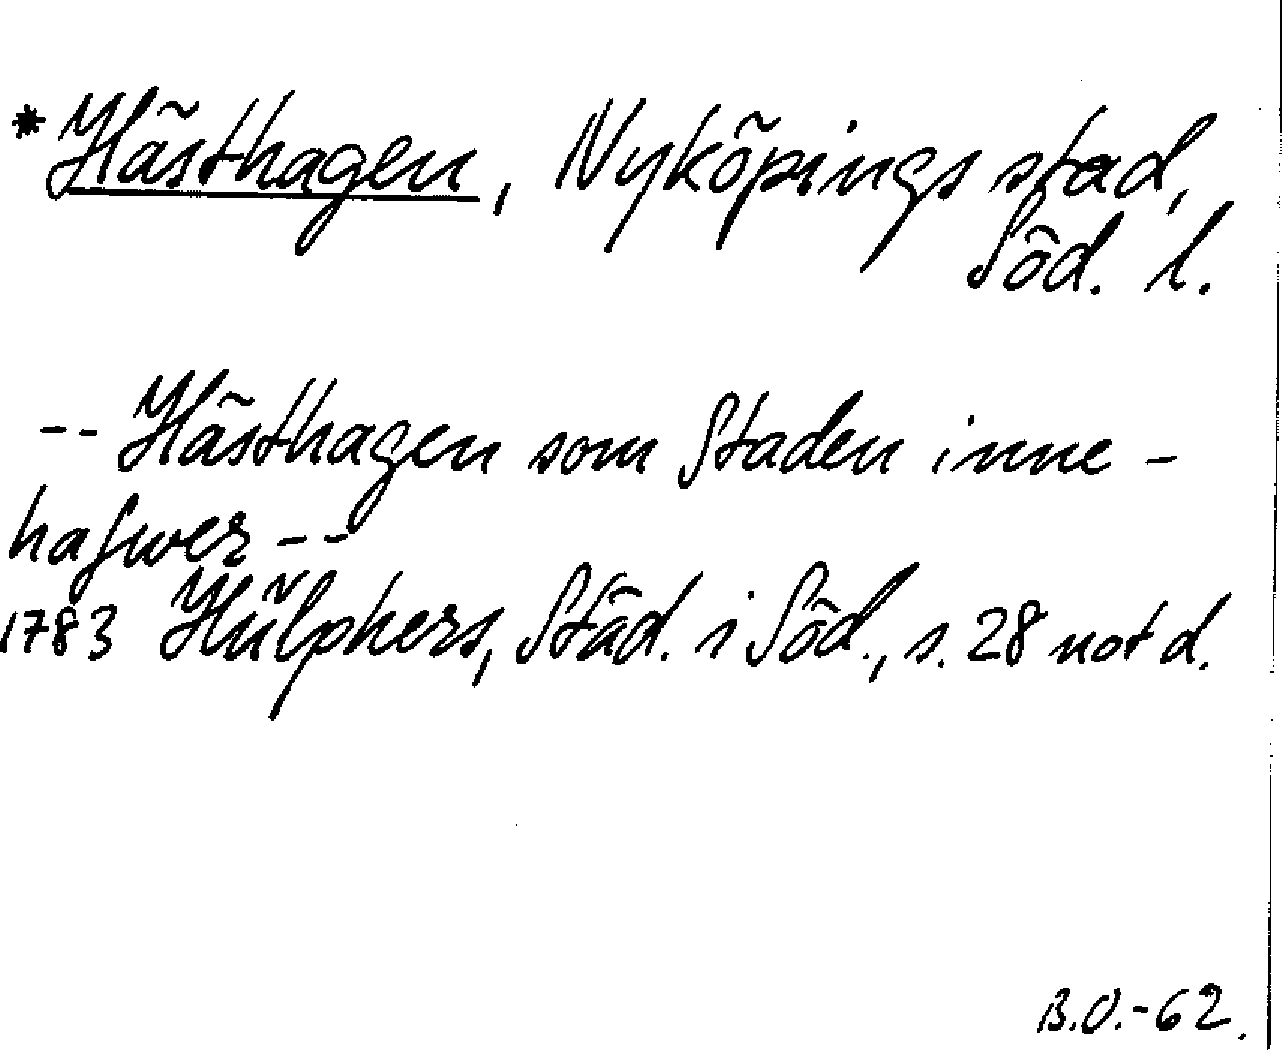 *Hästhagen, Nyköpings stad,
Söd. l.
-- Hästhagen som Staden inne-
hafwer --
1783 Hülphers, Städ. i Söd., s. 28 not d.
B.O.-62.